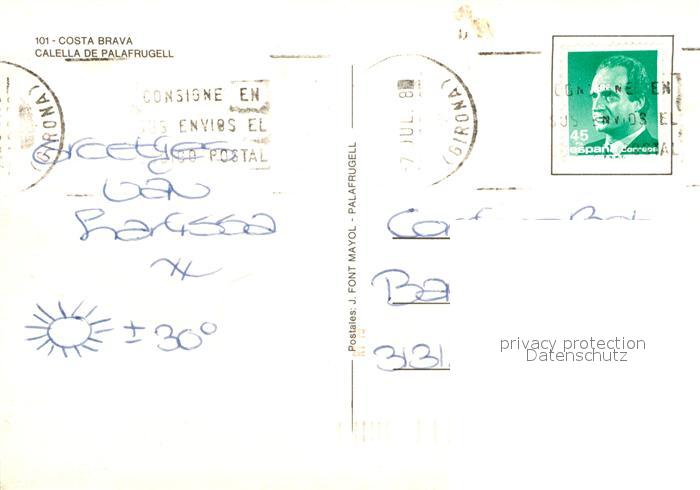 101 - COSTA BRAVA
CALELLA DE PALAFRUGELL
(GIRONA)
CONSIGNE EN
SUS ENVIOS EL
POSTAL
Groetjes
van
xx
± 30°
Postales: J. FONT MAYOL - PALAFRUGELL
7 JUL. 8
(GIRONA)
CONSIGNE EN
SUS ENVIOS EL
45
españa correos
Ba
3131
privacy protection
Datenschutz